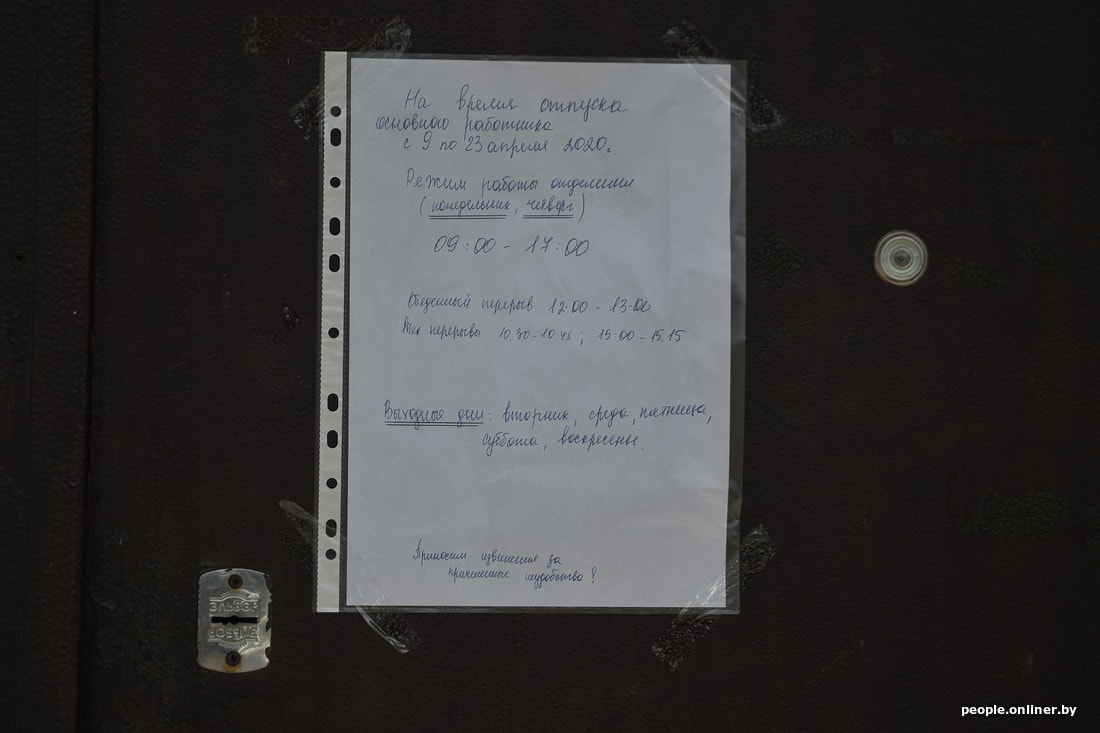 На время отпуска
основного работника
с 9 по 23 апреля 2020г.
Режим работы отделения
(понедельник, четверг)
09:00 - 17:00
Обеденный перерыв 12-00 - 13-00
Тех перерывы 10.30 - 10.45 ; 15:00 - 15.15
Выходные дни: вторник, среда, пятница,
суббота, воскресенье.
Приносим извинения за
причиненные неудобства!
people.onliner.by